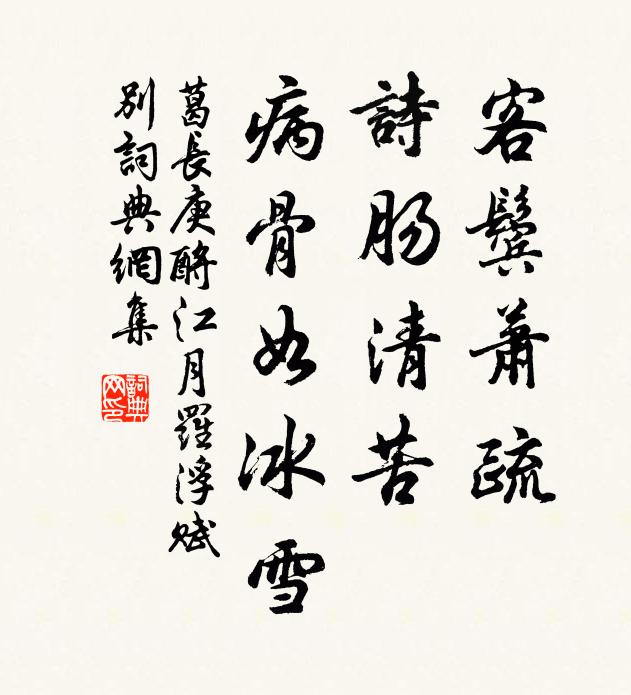 客鬢蕭疏
詩肠清苦
病骨如冰雪
葛長庚酹江月羅浮賦
別詞典網集
詞典网印